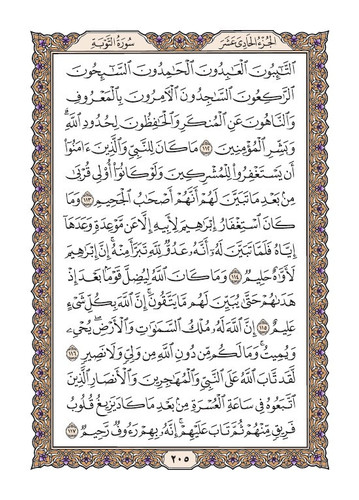 الجزء الحادي عشر سورة التوبة
التَّٰٓئِبُونَ ٱلْعَٰبِدُونَ ٱلْحَٰمِدُونَ ٱلسَّٰٓئِحُونَ
ٱلرَّٰكِعُونَ ٱلسَّٰجِدُونَ ٱلْءَامِرُونَ بِٱلْمَعْرُوفِ
وَٱلنَّاهُونَ عَنِ ٱلْمُنكَرِ وَٱلْحَٰفِظُونَ لِحُدُودِ ٱللَّهِۗ
وَبَشِّرِ ٱلْمُؤْمِنِينَ ١١٢ مَا كَانَ لِلنَّبِىِّ وَٱلَّذِينَ ءَامَنُوٓا۟
أَن يَسْتَغْفِرُوا۟ لِلْمُشْرِكِينَ وَلَوْ كَانُوٓا۟ أُو۟لِى قُرْبَىٰ
مِنۢ بَعْدِ مَا تَبَيَّنَ لَهُمْ أَنَّهُمْ أَصْحَٰبُ ٱلْجَحِيمِ ١١٣ وَمَا
كَانَ ٱسْتِغْفَارُ إِبْرَٰهِيمَ لِأَبِيهِ إِلَّا عَن مَّوْعِدَةٍ وَعَدَهَآ
إِيَّاهُ فَلَمَّا تَبَيَّنَ لَهُۥٓ أَنَّهُۥ عَدُوٌّ لِّلَّهِ تَبَرَّأَ مِنْهُۚ إِنَّ إِبْرَٰهِيمَ
لَأَوَّٰهٌ حَلِيمٌ ١١٤ وَمَا كَانَ ٱللَّهُ لِيُضِلَّ قَوْمًۢا بَعْدَ إِذْ
هَدَىٰهُمْ حَتَّىٰ يُبَيِّنَ لَهُم مَّا يَتَّقُونَۚ إِنَّ ٱللَّهَ بِكُلِّ شَىْءٍ
عَلِيمٌ ١١٥ إِنَّ ٱللَّهَ لَهُۥ مُلْكُ ٱلسَّمَٰوَٰتِ وَٱلْأَرْضِۖ يُحْىِۦ
وَيُمِيتُۚ وَمَا لَكُم مِّن دُونِ ٱللَّهِ مِن وَلِىٍّ وَلَا نَصِيرٍ ١١٦
لَّقَد تَّابَ ٱللَّهُ عَلَى ٱلنَّبِىِّ وَٱلْمُهَٰجِرِينَ وَٱلْأَنصَارِ ٱلَّذِينَ
ٱتَّبَعُوهُ فِى سَاعَةِ ٱلْعُسْرَةِ مِنۢ بَعْدِ مَا كَادَ يَزِيغُ قُلُوبُ
فَرِيقٍ مِّنْهُمْ ثُمَّ تَابَ عَلَيْهِمْۚ إِنَّهُۥ بِهِمْ رَءُوفٌ رَّحِيمٌ ١١٧
٢٠٥